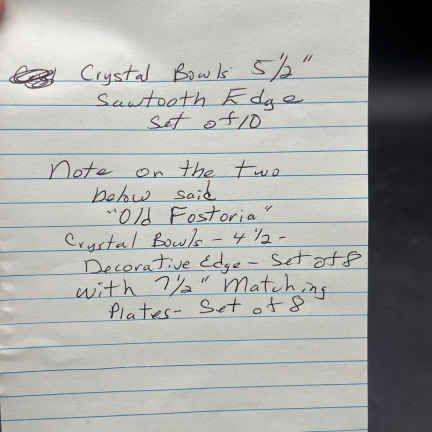 Crystal Bowls 5 1/2"
Sawtooth Edge
Set of 10
Note on the two
below said
"Old Fostoria"
Crystal Bowls - 4 1/2 -
Decorative Edge - Set of 8
with 7 1/2" Matching
Plates - Set of 8